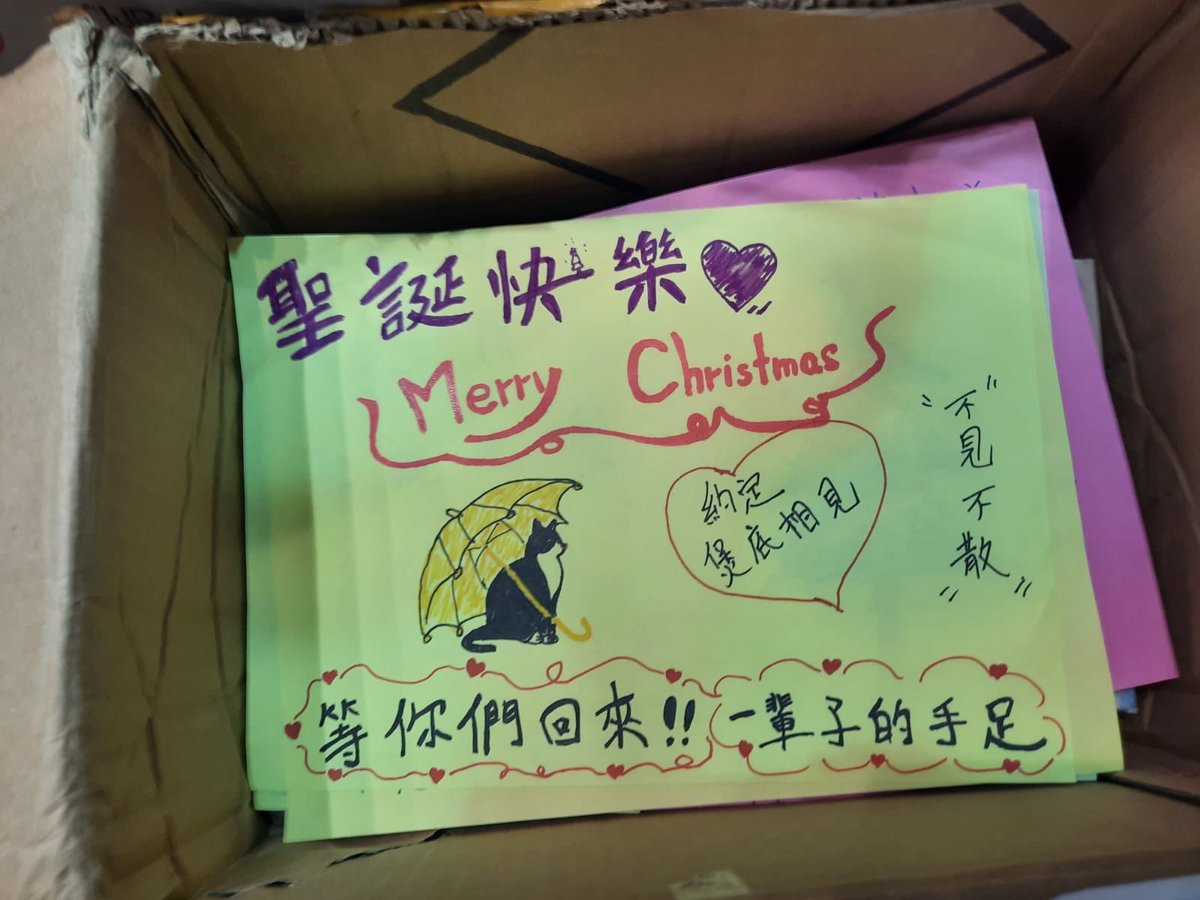 聖誕快樂
Merry Christmas
約定
煲底相見
"不見不散"
等你們回來!!
一輩子的手足